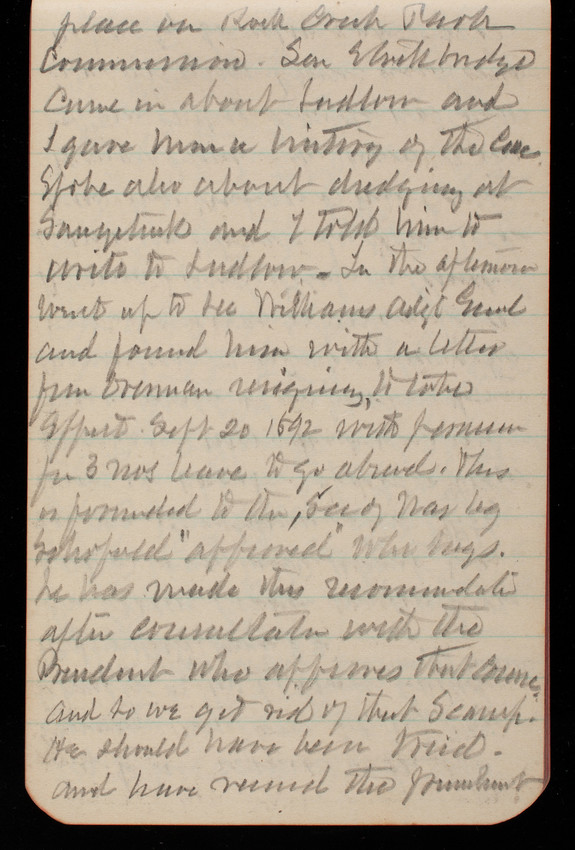 place on Rock Creek Park
Commission. Gen
Came in about Ludlow and
I gave him a history of the Case.
Spoke also about dredging at
Saugatuck and I told him to
write to Ludlow. In the afternoon
went up to see Williams Adjt Genl
and found him with a letter
from Drennan resigning, to take
Effect Sept 20 1892 with permission
for 3 mos leave to go abroad. This
is forwarded to the Secy War by
Schofield "approved" who says.
he has made this recommendation
after consultation with the
President who approves that course,
and so we get rid of that Scamp.
He should have been tried.
and have received the punishment